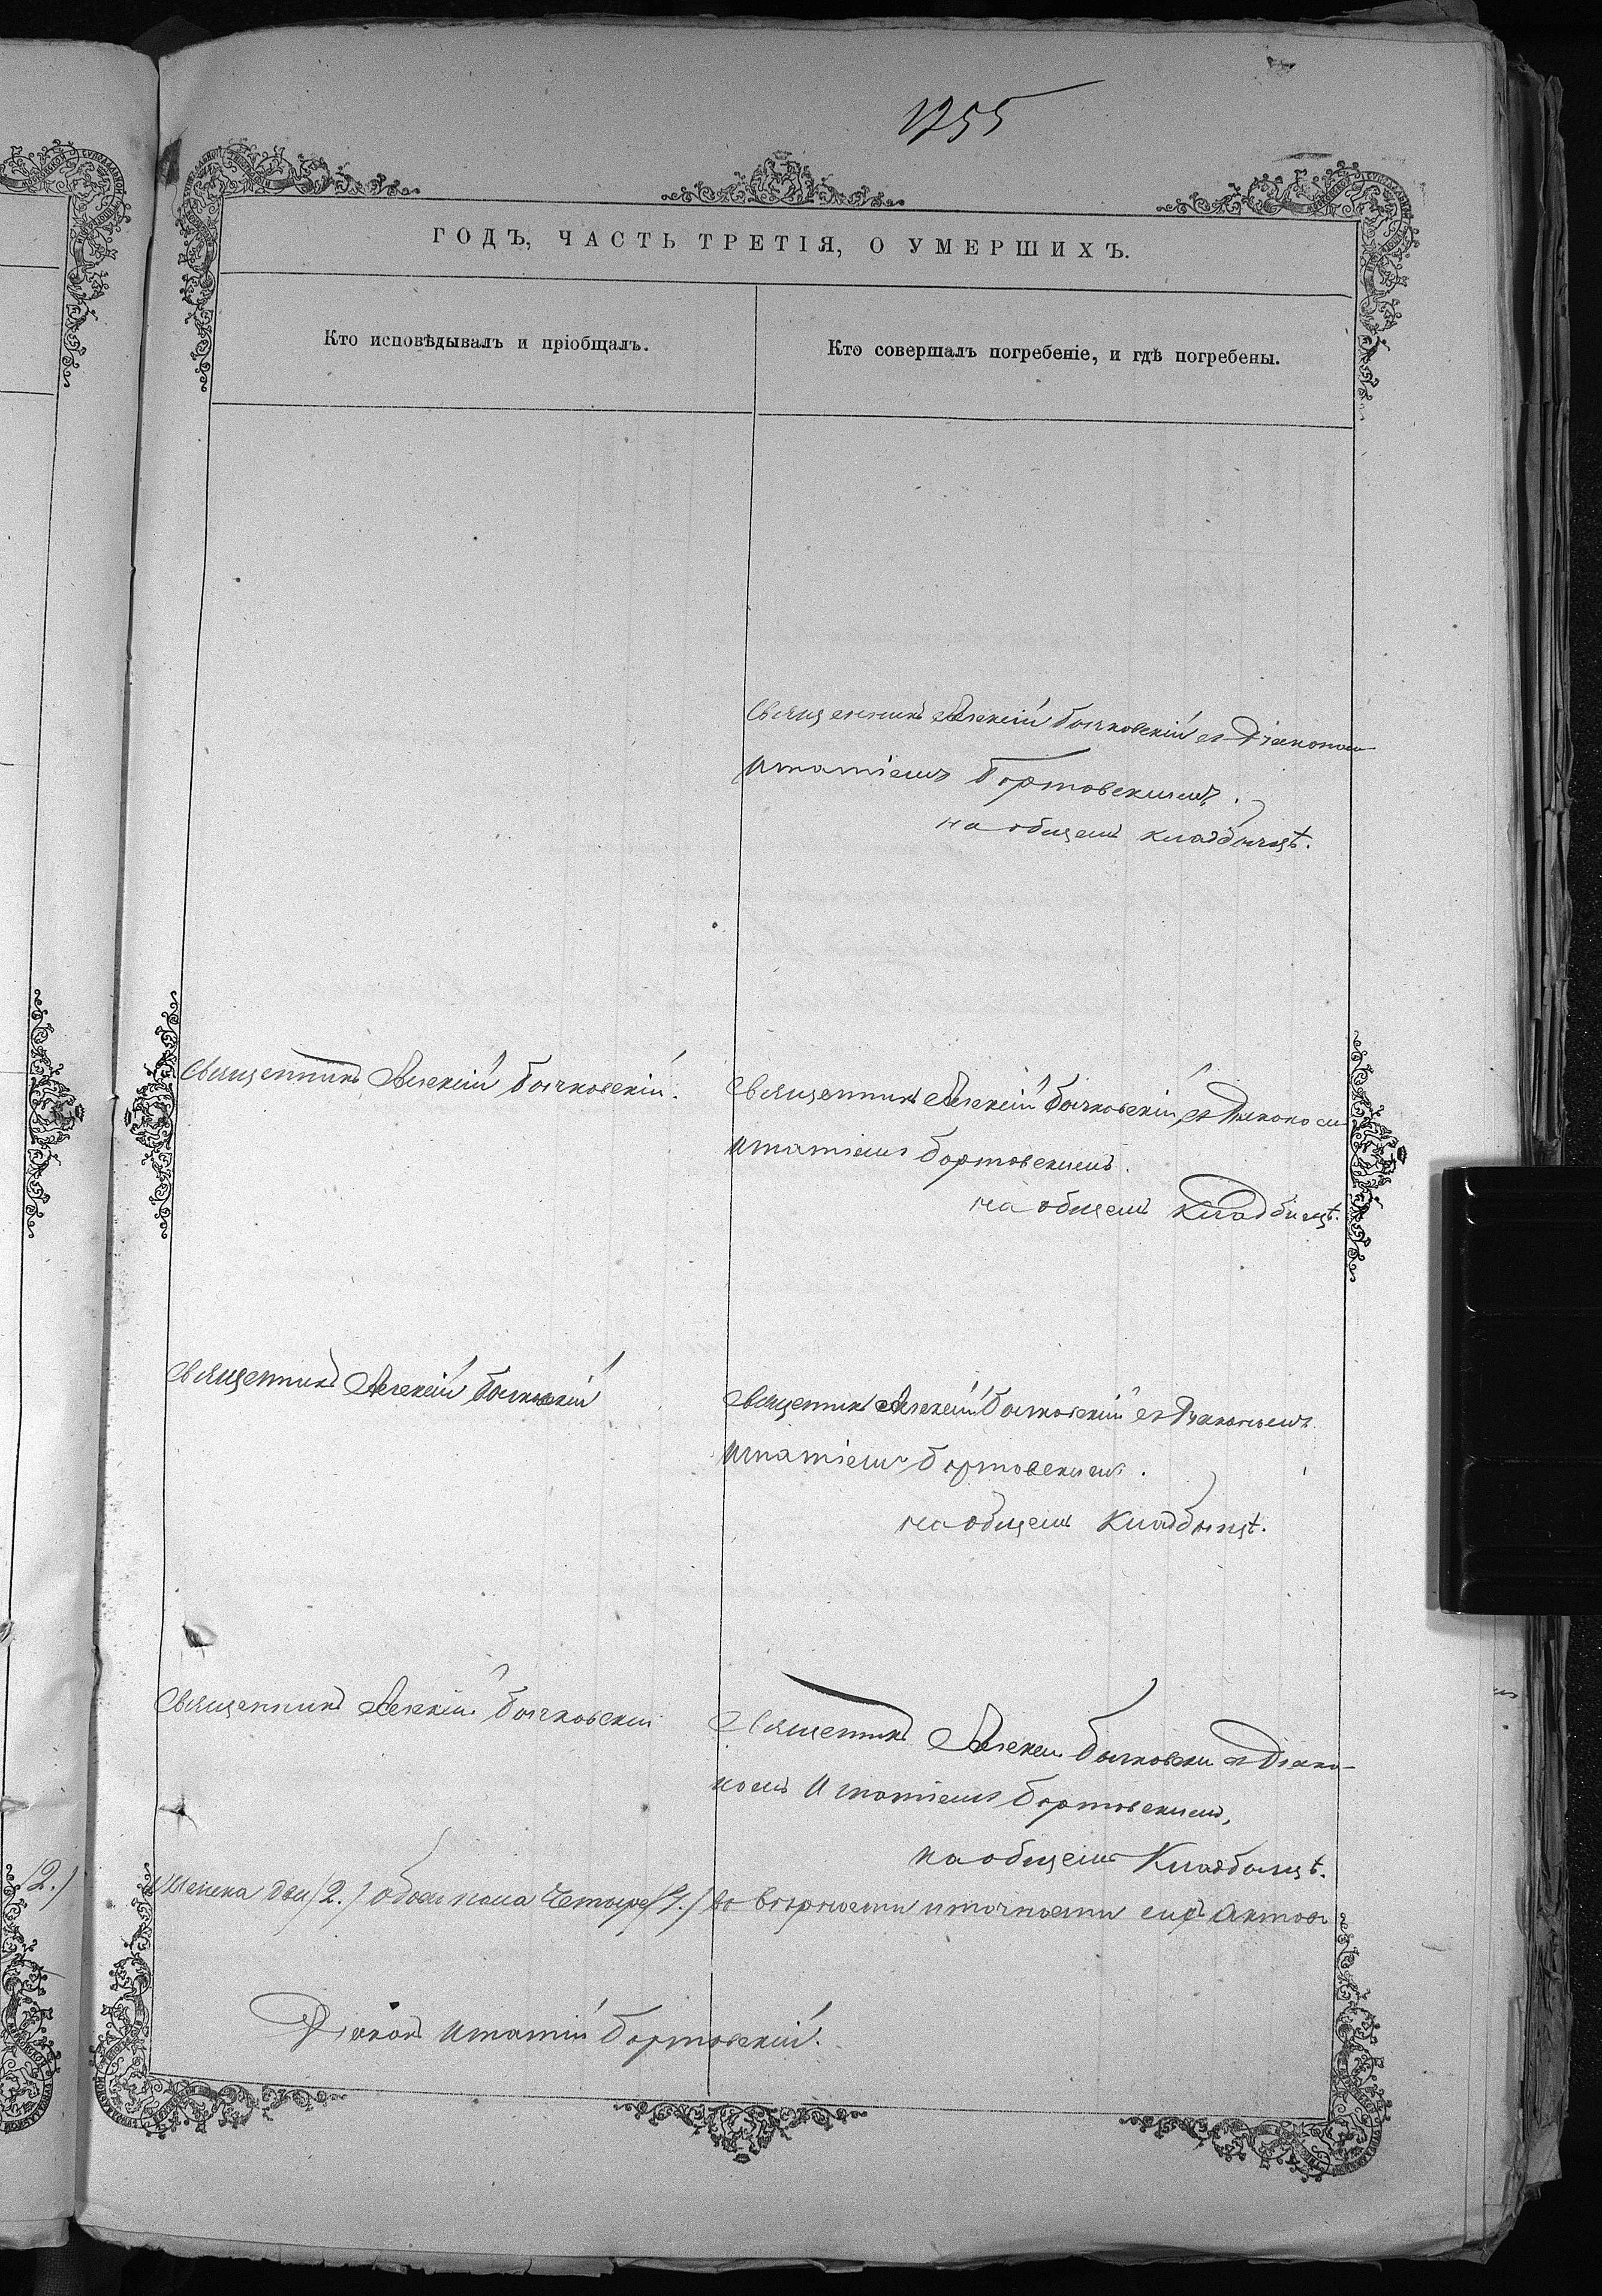 1755
ГОДЪ, ЧАСТЬ ТРЕТІЯ, О УМЕРШИХЪ.
Кто исповѣдывалъ и пріобщалъ.
Кто совершалъ погребеніе, и гдѣ погребены.
Священникъ Алексій Бычковскій съ Діакономъ
Игнатіемъ Бортовскимъ.
на общемъ кладбищѣ.
Священникъ Алексій Бычковскій.
Священникъ Алексій Бычковскій съ Діакономъ
Игнатіемъ Бортовскимъ.
на общемъ Кладбищѣ.
Священникъ Алексій Бычковскій
Священникъ Алексій Бычковскій съ Діакономъ
Игнатіемъ Бортовскимъ.
на общемъ Кладбищѣ.
Священникъ Алексій Бычковскій
Священникъ Алексій Бычковскій съ Діако-
номъ Игнатіемъ Бортовскимъ,
на общемъ Кладбищѣ.
12.)
женска два /2./ обоего пола четыре /4./ въ вѣрности и точности сихъ актовъ
Діаконъ Игнатій Бортовскій.